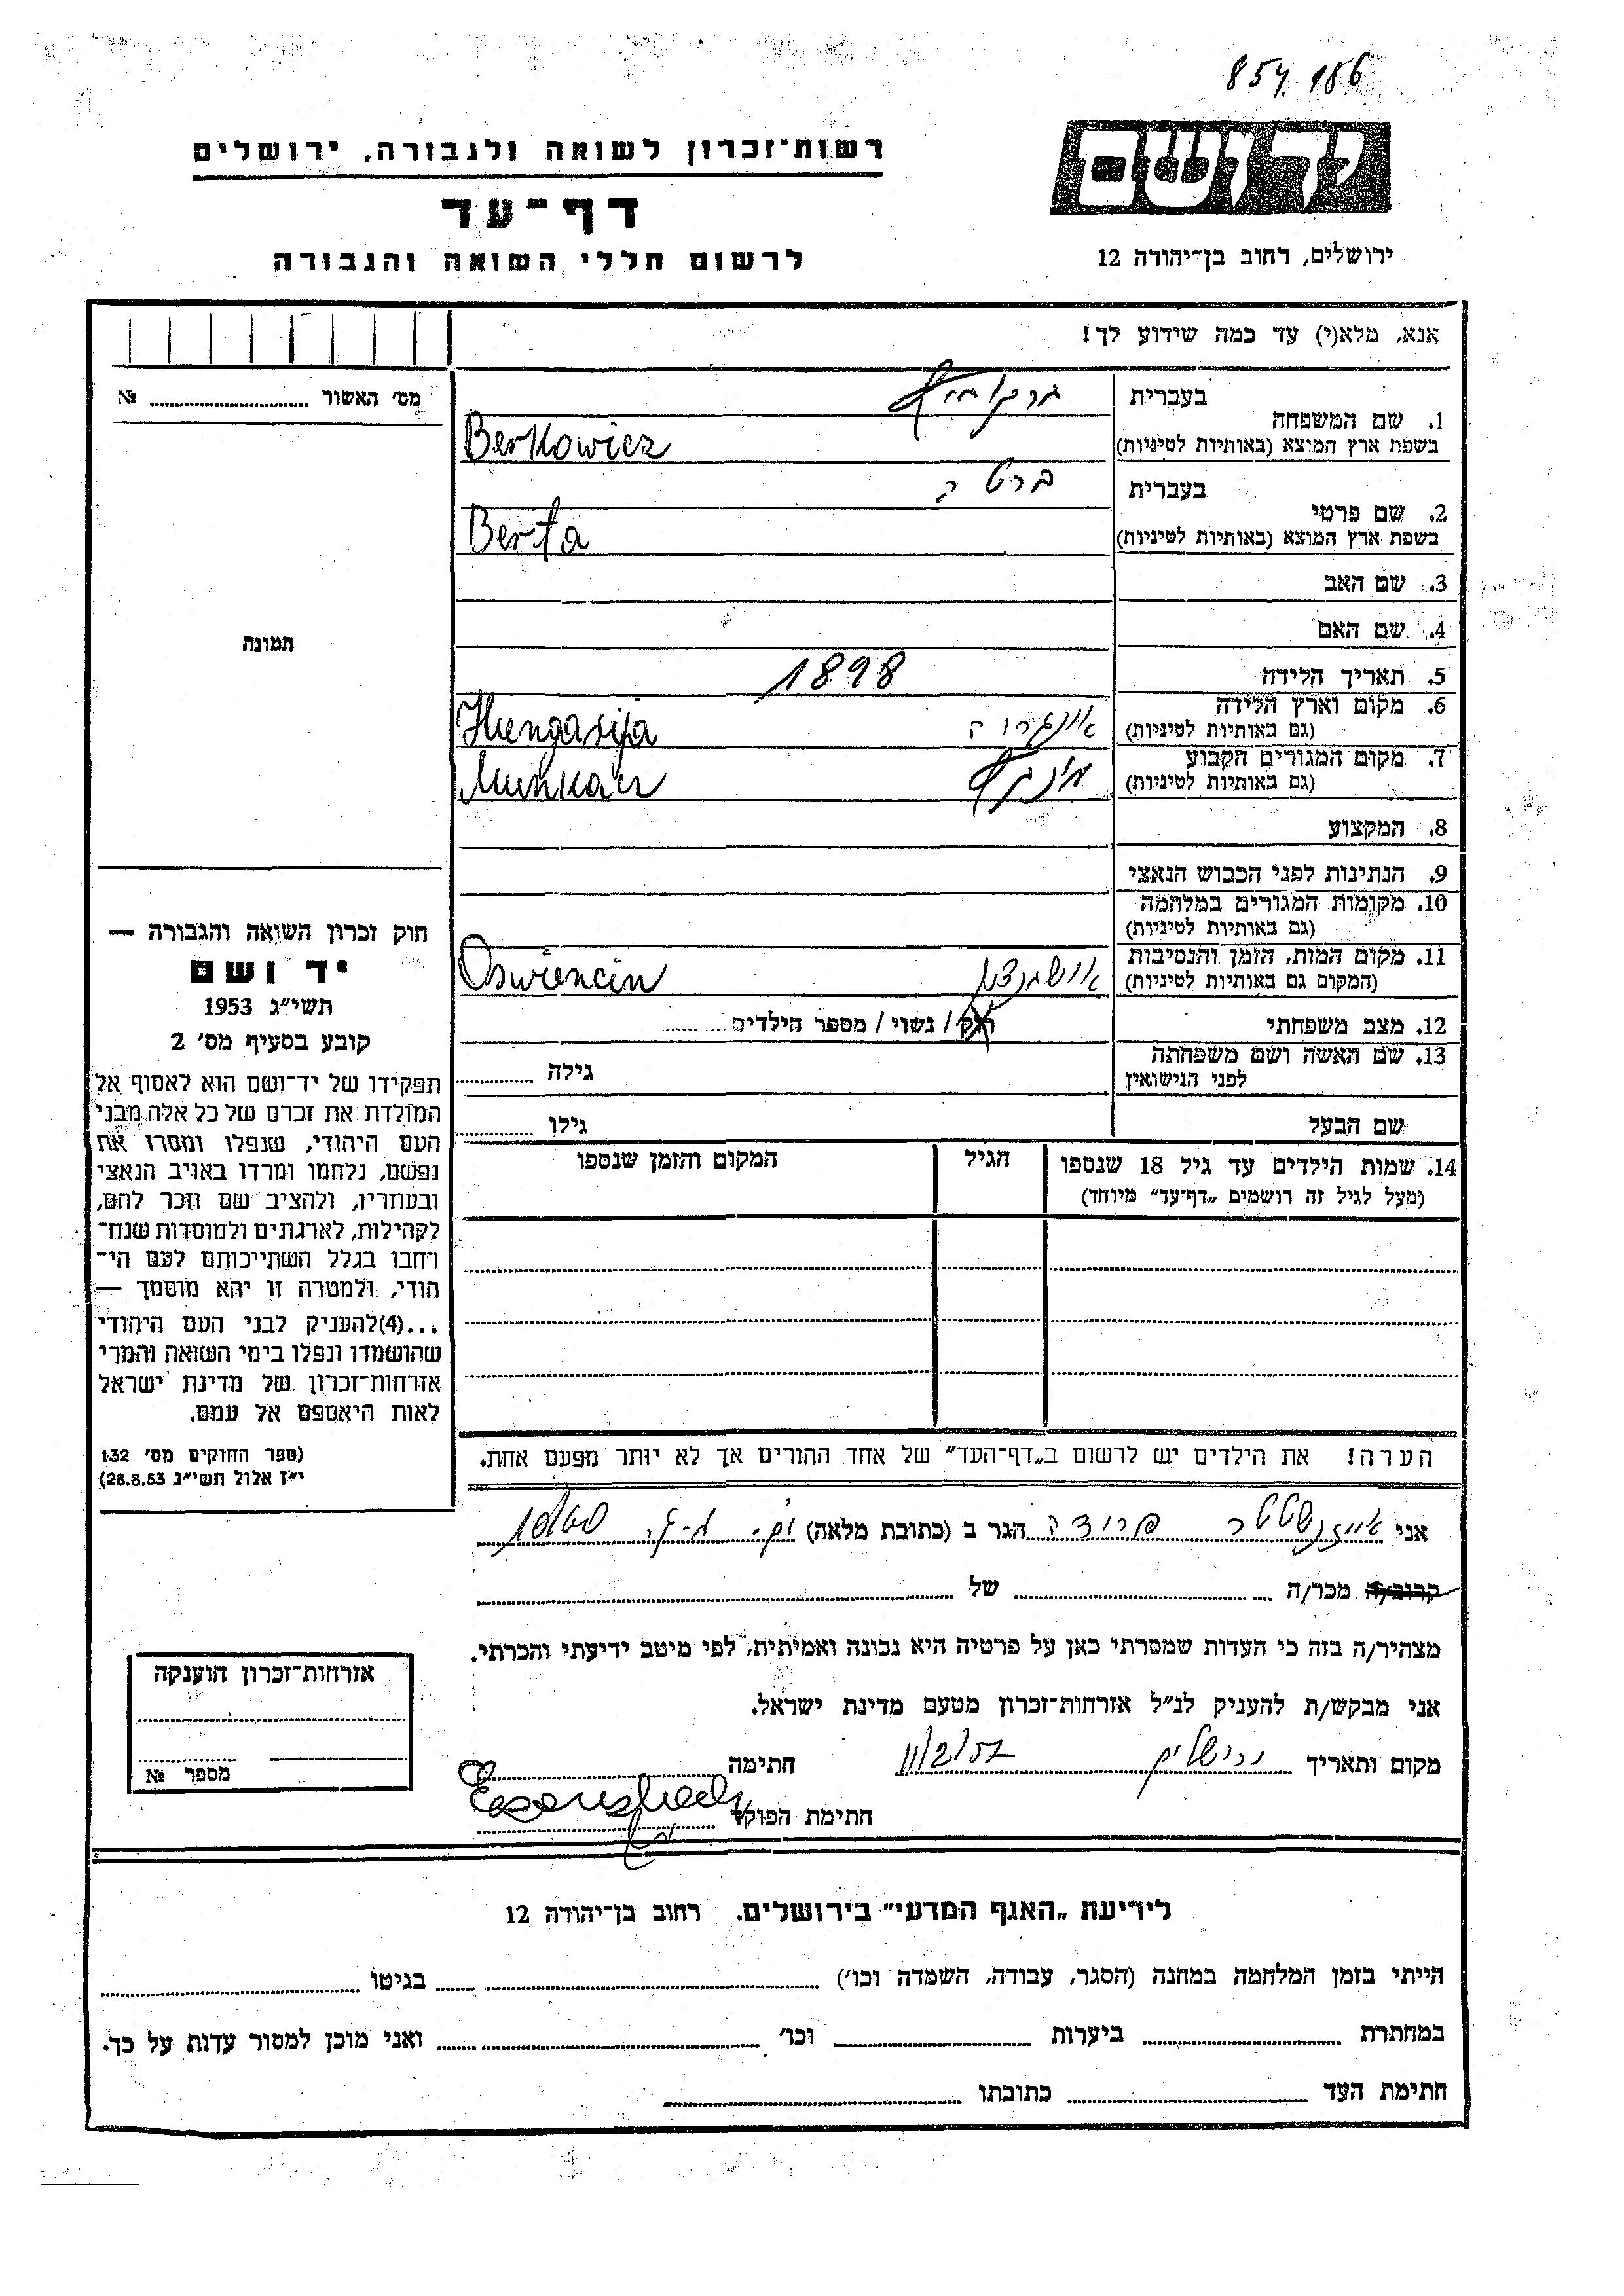 854.186
יד ושם
רשות־זכרון לשואה ולגבורה, ירושלים
דף־עד
לרשום חללי השואה והגבורה
ירושלים, רחוב בן־יהודה 12
אנא, מלא(י) עד כמה שידוע לך!
מס׳ האשור № 
תמונה
חוק זכרון השואה והגבורה —
יד ושם
תשי״ג 1953
קובע בסעיף מס׳ 2
תפקידו של יד־ושם הוא לאסוף אל
המולדת את זכרם של כל אלה מבני
העם היהודי, שנפלו ומסרו את
נפשם, נלחמו ומרדו באויב הנאצי
ובעוזריו, ולהציב שם וזכר להם,
לקהילות, לארגונים ולמוסדות שנח־
רחבו בגלל השתייכותם לעם הי־
הודי, ולמטרה זו יהא מוסמך —
...(4)להעניק לבני העם היהודי
שהושמדו ונפלו בימי השואה והמרי
אזרחות־זכרון של מדינת ישראל
לאות היאספם אל עמם.
(ספר החוקים מס׳ 132
י״ז אלול תשי״ג 28.8.53)
1. שם המשפחה
בעברית ברקוביץ
בשפת ארץ המוצא (באותיות לטיניות) Berkowicz
2. שם פרטי
בעברית ברטה
בשפת ארץ המוצא (באותיות לטיניות) Berta
3. שם האב
4. שם האם
5. תאריך הלידה 1898
6. מקום וארץ הלידה
(גם באותיות לטיניות) אונגריה Hungarija
7. מקום המגורים הקבוע
(גם באותיות לטיניות) Munkacz
8. המקצוע
9. הנתינות לפני הכבוש הנאצי
10. מקומות המגורים במלחמה
(גם באותיות לטיניות)
11. מקום המות, הזמן והנסיבות
(המקום גם באותיות לטיניות) Oswiencin
12. מצב משפחתי רוק / נשוי / מספר הילדים
13. שם האשה ושם משפחתה
לפני הנישואין גילה
שם הבעל גילו
14. שמות הילדים עד גיל 18 שנספו הגיל המקום והזמן שנספו
(מעל לגיל זה רושמים „דף־עד״ מיוחד)
הערה! את הילדים יש לרשום ב„דף־העד״ של אחד ההורים אך לא יותר מפעם אחת.
אני אייזנשטטר פרידה הגר ב (כתובת מלאה)
קרוב/ה מכר/ה של
מצהיר/ה בזה כי העדות שמסרתי כאן על פרטיה היא נכונה ואמיתית, לפי מיטב ידיעתי והכרתי.
אני מבקש/ת להעניק לנ״ל אזרחות־זכרון מטעם מדינת ישראל.
מקום ותאריך ירושלים 11/2/57 חתימה
חתימת הפוקד
אזרחות־זכרון הוענקה
מספר №
לידיעת „האגף המדעי״ בירושלים. רחוב בן־יהודה 12
הייתי בזמן המלחמה במחנה (הסגר, עבודה, השמדה וכו׳) בגיטו
במחתרת ביערות וכו׳ ואני מוכן למסור עדות על כך.
חתימת העד כתובתו